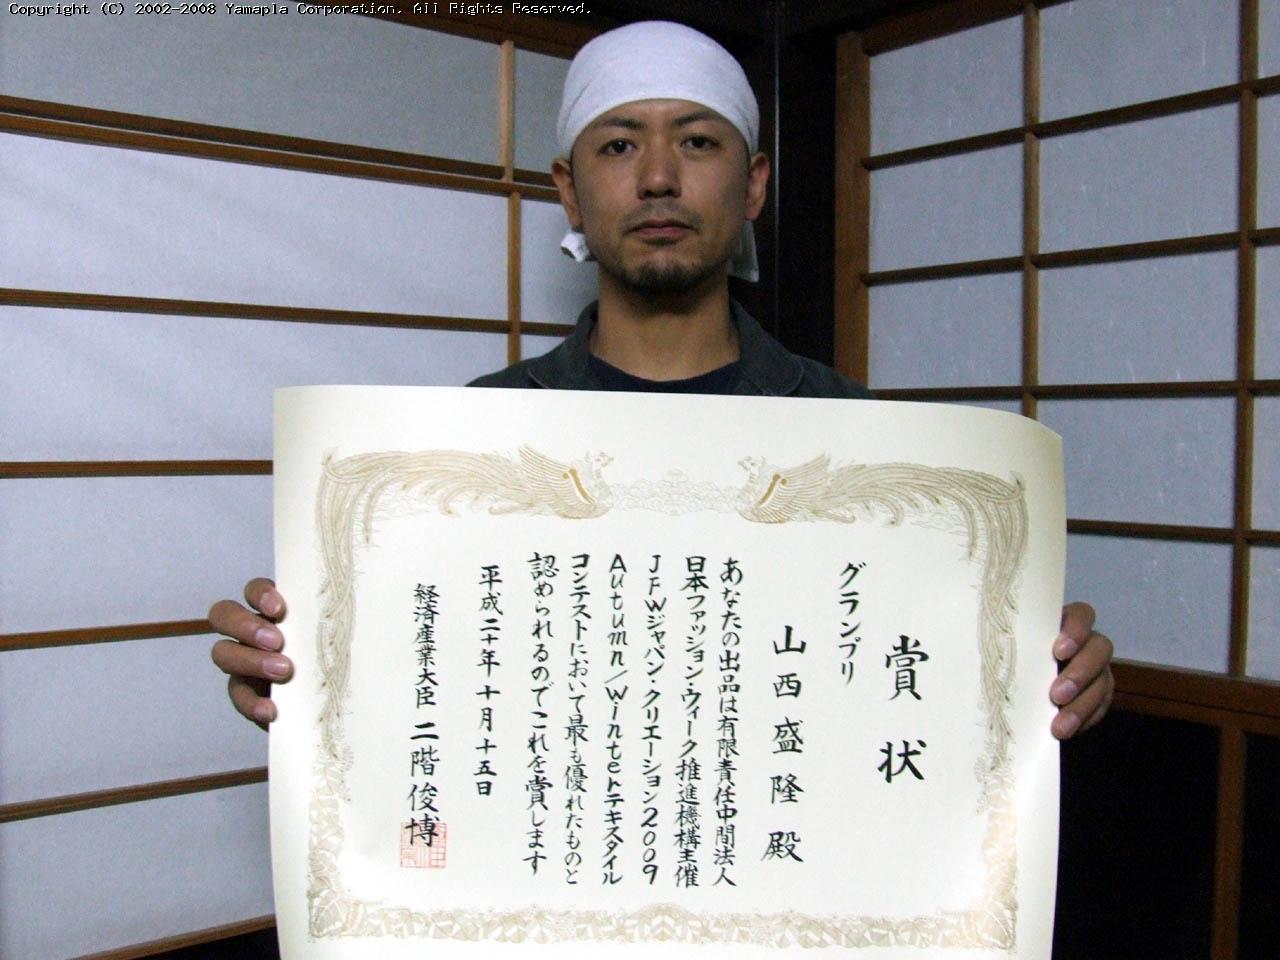 Copyright (C) 2002-2008 Yamapla Corporation. All Rights Reserved.
賞状
グランプリ
山西盛隆殿
あなたの出品は有限責任中間法人
日本ファッション・ウィーク推進機構主催
JFWジャパン・クリエーション2009
Autumn/Winterテキスタイル
コンテストにおいて最も優れたものと
認められるのでこれを賞します
平成二十年十月十五日
経済産業大臣 二階俊博